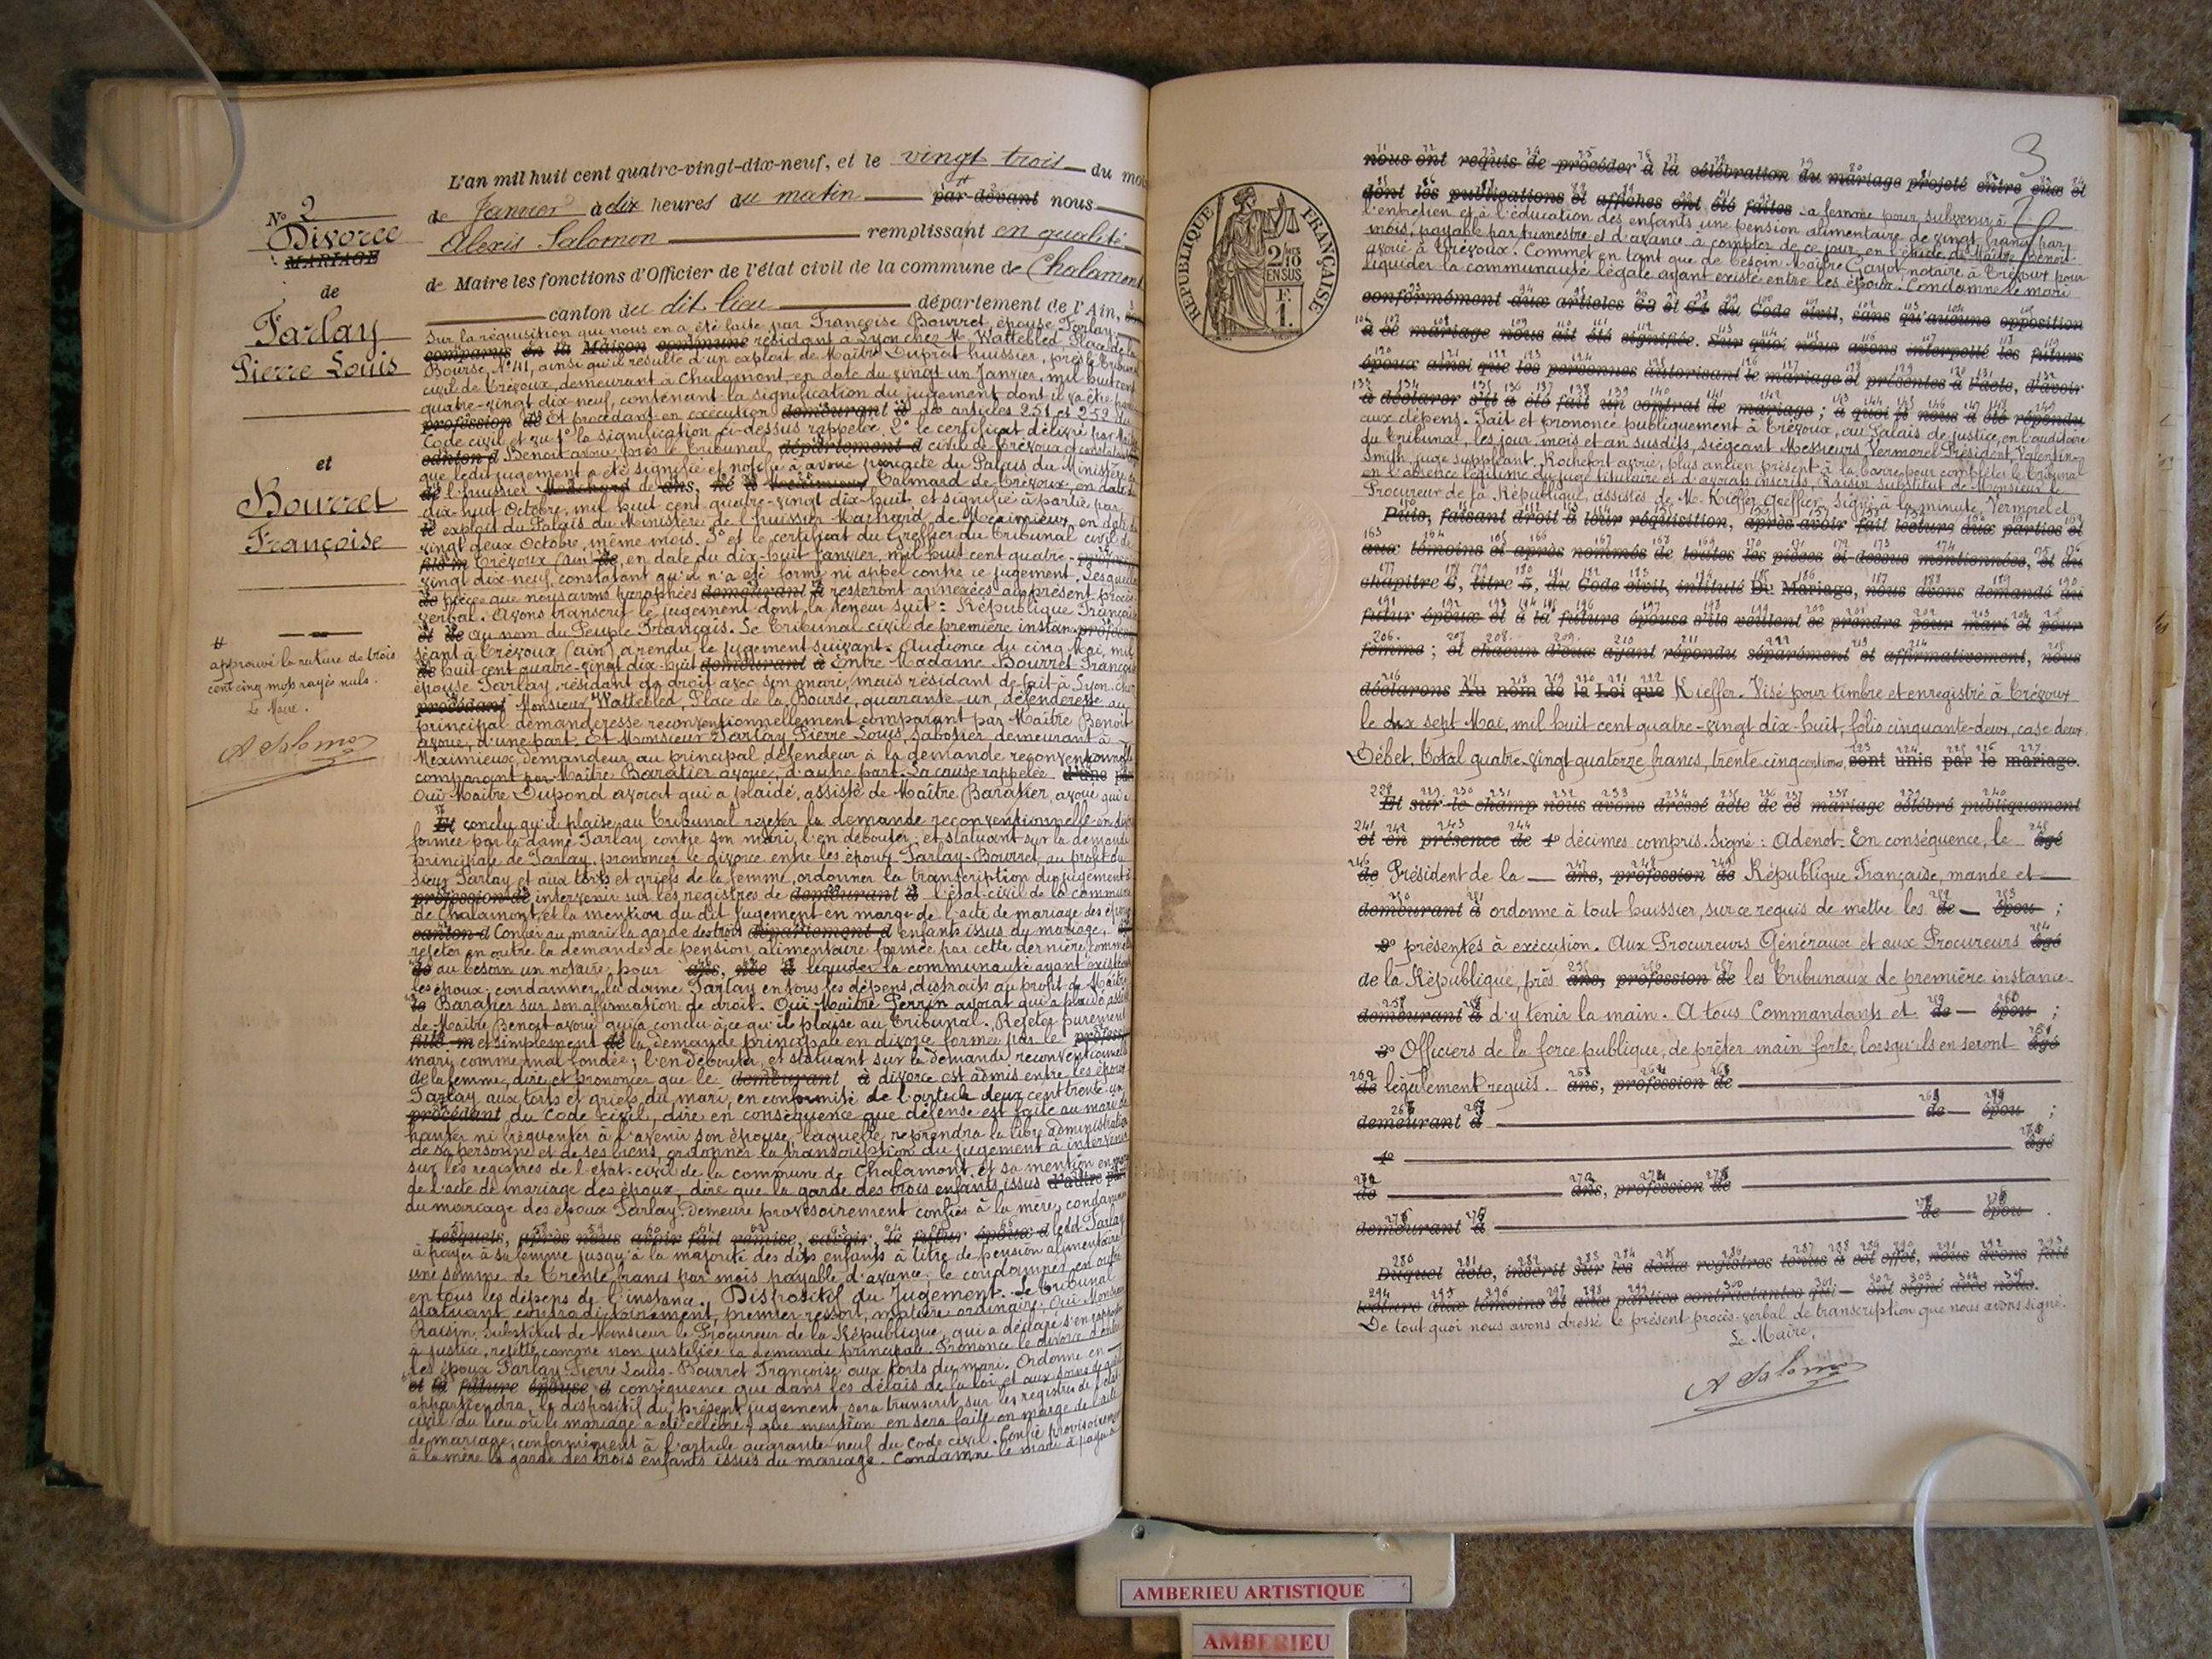 L'an mil huit cent quatre-vingt-dix-neuf, et le vingt trois du mois
de Janvier à dix heures du matin par-devant nous
Alexis Salomon remplissant en qualité
de Maire les fonctions d'Officier de l'état civil de la commune de Chalamont
canton du dit lieu département de l'Ain,
N° 2
Divorce
MARIAGE
de
Farlay
Pierre Louis
et
Bourret
Françoise
#
approuvé la rature de trois
cent cinq mots rayés nuls.
Le Maire.
A Salomon
Sur la réquisition qui nous en a été faite par Françoise Bourret, épouse Farlay
comparus en la Maison commune résidant à Lyon chez M. Wattebled, Place de la
Bourse, N° 41, ainsi qu'il résulte d'un exploit de Maître Duprat huissier, près le Tribunal
civil de Trévoux, demeurant à Chalamont, en date du vingt un Janvier, mil huit cent
quatre-vingt dix-neuf, contenant la signification du jugement dont il va être
profession de Et procédant en exécution demeurant à des articles 251 et 252 du
Code civil et vu 1° la signification ci-dessus rappelée, 2° le certificat délivré par
canton d Benoit avoué, près le Tribunal département d civil de Trévoux constatant
que ledit jugement a été signifié et notifié à avoué par acte du Palais du Ministère
de l'huissier Machard de ans, né à Calmard de Trévoux, en date du
dix-huit Octobre, mil huit cent quatre-vingt dix-huit et signifié à partie par
exploit du Palais du Ministère de l'huissier Machard de Meximieux, en date du
vingt deux Octobre, même mois. 3° et le certificat du Greffier du Tribunal civil de
fils m Trévoux (ain) de, en date du dix-huit Janvier, mil huit cent quatre-
vingt dix-neuf, constatant qu'il n'a été formé ni appel contre ce jugement. Lesquelles
de pièces que nous avons paraphées demeurant à resteront annexées au présent procès
verbal. Avons transcrit le jugement dont la teneur suit: République Française
et de au nom du Peuple Français. Le Tribunal civil de première instan
séant à Trévoux (ain) a rendu le jugement suivant. Audience du cinq Mai, mil
de huit cent quatre-vingt dix-huit demeurant à Entre Madame Bourret Françoise
épouse Farlay, résidant de droit avec son mari, mais résidant de fait à Lyon, chez
procédant Monsieur Wattebled, Place de la Bourse, quarante-un, défenderesse au
principal demanderesse reconventionnellement comparant par Maître Benoit
avoué, d'une part. Et Monsieur Farlay Pierre Louis, sabotier demeurant à
Meximieux, demandeur au principal défendeur à la demande reconventionnelle
comparant par Maître Baratier avoué, d'autre part. La cause rappelée d'une par
Ouï Maître Dupond avocat qui a plaidé, assisté de Maître Baratier, avoué qui a
Et conclu qu'il plaise au Tribunal rejeter la demande reconventionnelle en
formée par la dame Farlay contre son mari, l'en débouter; et statuant sur la demande
principale de Farlay, prononcer le divorce entre les époux Farlay-Bourret, au profit du
sieur Farlay et aux torts et griefs de la femme, ordonner la transcription du jugement à
profession de intervenir sur les registres de demeurant à l'état-civil de la commune
de Chalamont, et la mention du dit jugement en marge de l'acte de mariage des époux
canton d Confier au mari la garde des trois département d enfants issus du mariage,
rejeter en outre la demande de pension alimentaire formée par cette dernière, commettre
de au besoin un notaire pour ans, née à liquider la communauté ayant existé
les époux; condamner la dame Farlay en tous les dépens, distraits au profit de Maître
le Baratier sur son affirmation de droit. Ouï Maître Perrin avocat qui a plaidé assisté
de Maître Benoit avoué qui a conclu à ce qu'il plaise au Tribunal. Rejeter purement
fille m et simplement de la demande principale en divorce formée par le
mari, comme mal fondée; l'en débouter, et statuant sur la demande reconventionnelle
de la femme, dire et prononcer que le demeurant à divorce est admis entre les époux
Farlay aux torts et griefs du mari, en conformité de l'article deux cent trente un
procédant du Code civil, dire en conséquence que défense est faite au mari de
hanter ni fréquenter à l'avenir son épouse, laquelle reprendra la libre administration
de sa personne et de ses biens, ordonner la transcription du jugement à intervenir
sur les registres de l'état-civil de la commune de Chalamont, et sa mention en marge
de l'acte de mariage des époux, dire que la garde des trois enfants issus d'autre part
du mariage des époux Farlay, demeure provisoirement confiés à la mère, condamner
Lesquels, après nous avoir fait remise, savoir, le futur époux d ledit Farlay
à payer à sa femme jusqu'à la majorité des dits enfants à titre de pension alimentaire
une somme de Trente francs par mois payable d'avance; le condamner en outre
en tous les dépens de l'instance. Dispositif du Jugement. Le Tribunal
statuant contradictoirement, premier ressort, matière ordinaire, Ouï Monsieur
Raisin, Substitut de Monsieur le Procureur de la République, qui a déclaré s'en rapporter
à justice, rejette comme non justifiée la demande principale. Prononce le divorce d'entre
les époux Farlay Pierre Louis-Bourret Françoise aux torts du mari. Ordonne en
et la future épouse d conséquence que dans les délais de la loi et aux soins de qui
appartiendra, le dispositif du présent jugement sera transcrit sur les registres de l'état
civil du lieu où le mariage a été célébré; que mention en sera faite en marge de l'acte
de mariage, conformément à l'article quarante-neuf du Code civil. Confie provisoirement
à la mère la garde des trois enfants issus du mariage. Condamne le mari à payer à
REPUBLIQUE FRANÇAISE
2/10
EN SUS
F.
1.
3
nous ont requis de procéder à la célébration du mariage projeté entre eux et
dont les publications et affiches ont été faites sa femme pour subvenir à
l'entretien et à l'éducation des enfants une pension alimentaire de vingt francs par
mois, payable par trimestre et d'avance à compter de ce jour, en l'étude de Maître Benoit
avoué à Trévoux. Commet en tant que de besoin Maître Gayot notaire à Trévoux pour
liquider la communauté légale ayant existé entre les époux. Condamne le mari
conformément aux articles 63 et 64 du Code civil, sans qu'aucune opposition
à ce mariage nous ait été signifiée. Sur quoi nous avons interpellé les futurs
époux ainsi que les personnes autorisant le mariage et présentes à l'acte, d'avoir
à déclarer s'il a été fait un contrat de mariage; à quoi il nous a été répondu
aux dépens. Fait et prononcé publiquement à Trévoux, au Palais de justice, en l'auditoire
du Tribunal, les jour, mois et an susdits, siégeant Messieurs Vermorel Président, Valentin-
Smith, juge suppléant, Rochefort avoué, plus ancien présent à la barre pour compléter le Tribunal
en l'absence légitime du juge titulaire et d'avocats inscrits, Raisin substitut de Monsieur le
Procureur de la République, assistés de M. Kieffer Greffier. Signé à la minute, Vermorel et
Puis, faisant droit à leur réquisition, après avoir fait lecture aux parties et
aux témoins ci-après nommés de toutes les pièces ci-dessus mentionnées, et du
chapitre 6, titre 5, du Code civil, intitulé Du Mariage, nous avons demandé au
futur époux et à la future épouse s'ils veulent se prendre pour mari et pour
femme; et chacun d'eux ayant répondu séparément et affirmativement, nous
déclarons Au nom de la Loi que Kieffer. Visé pour timbre et enregistré à Trévoux
le dix sept Mai, mil huit cent quatre-vingt dix-huit, folio cinquante-deux, case deux.
Débet. Total quatre-vingt quatorze francs, trente cinq centimes, sont unis par le mariage.
Et sur-le-champ nous avons dressé acte de ce mariage célébré publiquement
et en présence de 1° décimes compris. Signé: Adenot. En conséquence, le âgé
de Président de la ans, profession de République Française, mande et
demeurant à ordonne à tout huissier, sur ce requis de mettre les de — épou ;
2° présentes à exécution. Aux Procureurs Généraux et aux Procureurs âgé
de la République, près ans, profession de les Tribunaux de première instance
demeurant à d'y tenir la main. A tous Commandants et de — épou ;
3° Officiers de la force publique, de prêter main forte, lorsqu'ils en seront âgé
de légalement requis. ans, profession de
demeurant à de — épou ;
4° âgé
de ans, profession de
demeurant à de — épou .
Duquel acte, inscrit sur les deux registres tenus à cet effet, nous avons fait
lecture aux témoins et aux parties contractantes qui — ont signé avec nous.
De tout quoi nous avons dressé le présent procès-verbal de transcription que nous avons signé.
Le Maire,
A Salomon
AMBERIEU ARTISTIQUE
AMBERIEU